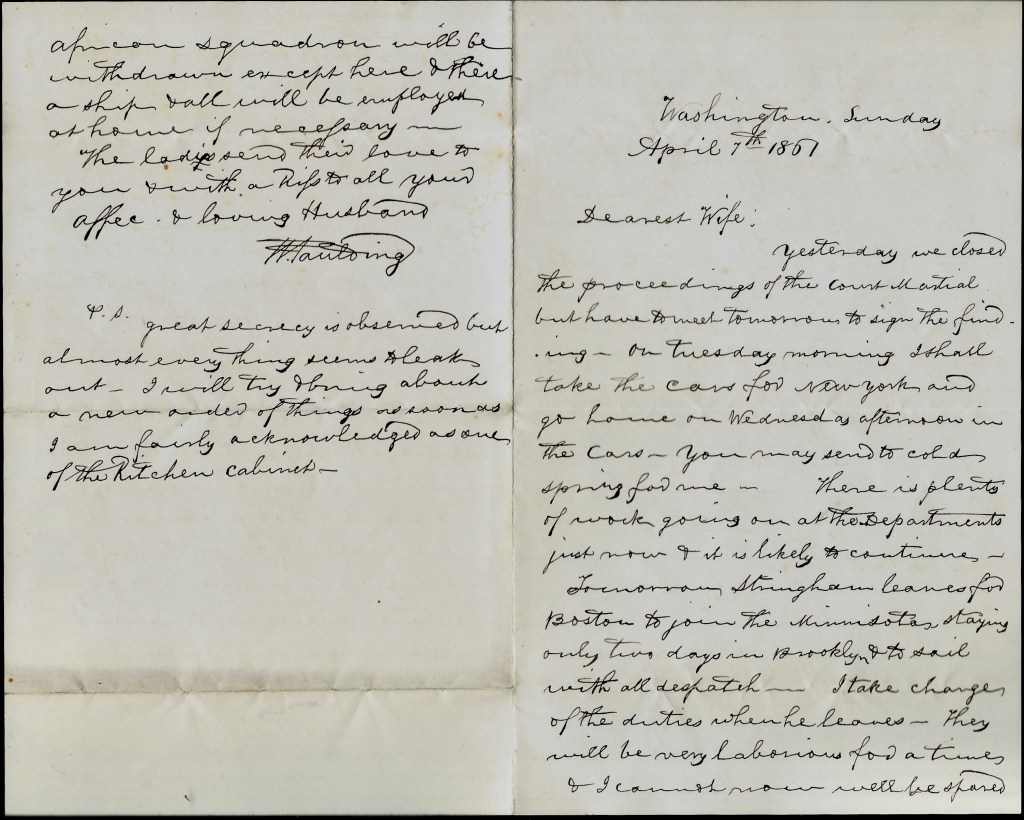 Washington. Sunday
April 7th 1861
Dearest Wife:
Yesterday we closed
the proceedings of the Court Martial
but have to meet tomorrow to sign the find-
-ing - On Tuesday morning I shall
take the cars for New York and
go home on Wednesday afternoon in
the Cars - You may send to cold
spring for me - There is plenty
of work going on at the Departments
just now & it is likely to continue -
Tomorrow Stringham leaves for
Boston to join the Minnisota, staying
only two days in Brooklyn & to sail
with all despatch - I take charge
of the duties when he leaves - They
will be very laborious for a time
& I cannot now well be spared
african squadron will be
withdrawn except here & there
a ship & all will be employed
at home if necessary -
The ladies send their love to
you & with a Kiss to all your
affec. & loving Husband
H. Paulding
P.S. great secrecy is observed but
almost every thing seems to leak
out - I will try & bring about
a new order of things as soon as
I am fairly acknowledged as one
of the Kitchen cabinet -